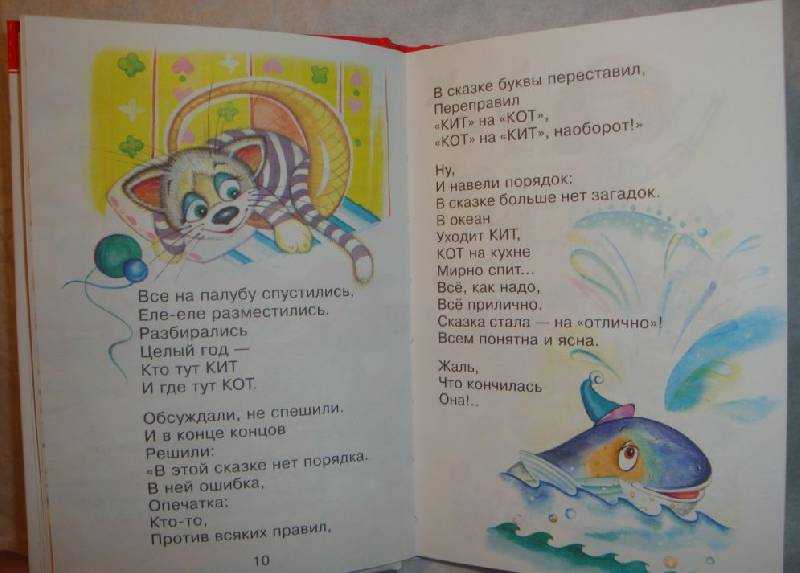 Все на палубу спустились,
Еле-еле разместились.
Разбирались
Целый год —
Кто тут КИТ
И где тут КОТ.
Обсуждали, не спешили.
И в конце концов
Решили:
«В этой сказке нет порядка.
В ней ошибка,
Опечатка:
Кто-то,
Против всяких правил,
10
В сказке буквы переставил,
Переправил
«КИТ» на «КОТ»,
«КОТ» на «КИТ», наоборот!»
Ну,
И навели порядок:
В сказке больше нет загадок.
В океан
Уходит КИТ,
КОТ на кухне
Мирно спит...
Всё, как надо,
Всё прилично.
Сказка стала — на «отлично»!
Всем понятна и ясна.
Жаль,
Что кончилась
Она!..